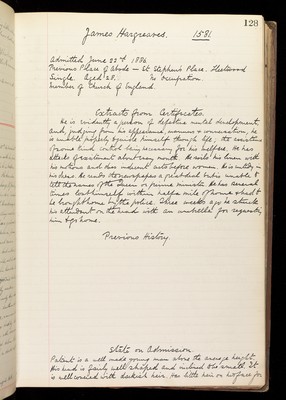 128
James Hargreaves. 1581
Admitted June 22nd 1886
Previous Place of Abode — St Stephen's Place. Fleetwood
Single Aged 28. No Occupation.
Member of Church of England
Extracts from Certificates.
He is evidently a person of defective mental development
and, judging from his appearance, manners & conversation, he
is unable properly to guide himself through life, the
of some kind control being necessary for his welfare. He has
attacks of excitement about every month. He his linen with
his motions and does indecent acts before women. He is untidy in
his dress. He reads the newspapers a great deal but is unable to
tell the name of the Queen or prime minister. He has several
times lost himself within half a mile of home & had to
be brought home by the police. Three weeks ago he struck
his attendant on the head with an umbrella for
him to go home.
Previous History.
State on Admission
Patient is a well made young man above the average height.
His head is fairly well shaped and inclined to be small. It
is well covered with darkish hair. Has little hair on his face for